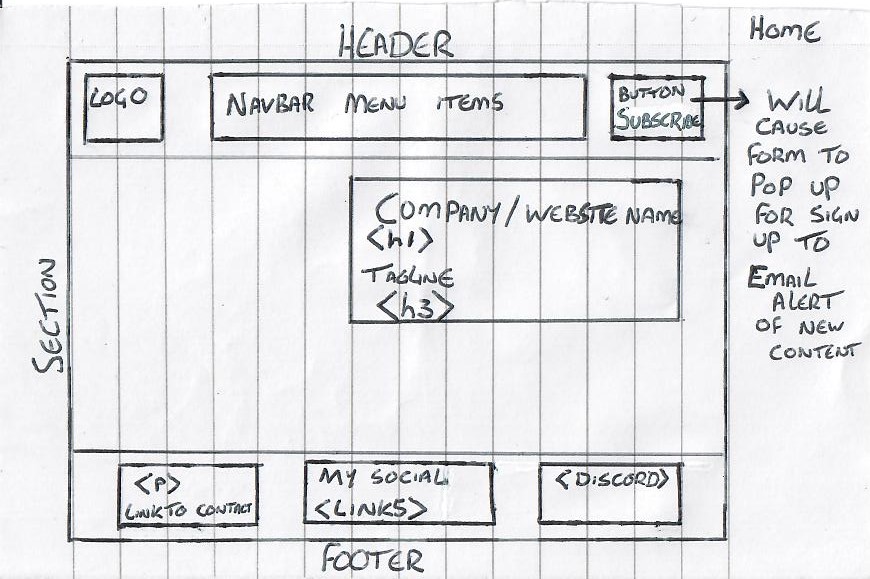 HOME
HEADER
LOGO
NAVBAR MENU ITEMS
BUTTON
SUBSCRIBE
WILL
CAUSE
FORM TO
POP UP
FOR SIGN
UP TO
EMAIL
ALERT
OF NEW
CONTENT
COMPANY/WEBSITE NAME
<h1>
TAGLINE
<h3>
SECTION
<P>
LINK TO CONTACT
MY SOCIAL
<LINKS>
<DISCORD>
FOOTER